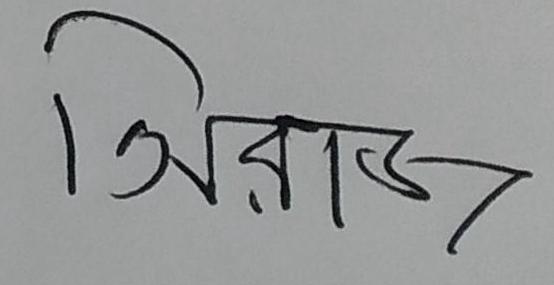 সিরাজ